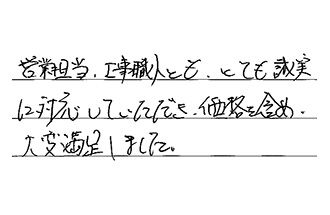 営業担当、工事職人とも、とても誠実
に対応していただき、価格を含め、
大変満足しました。